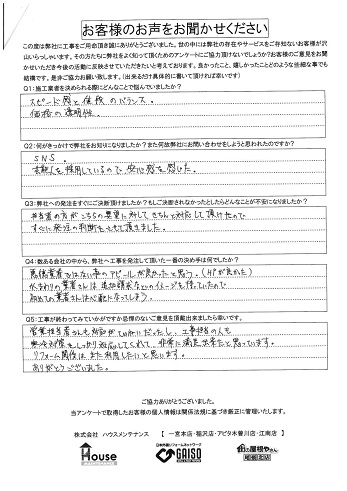 お客様のお声をお聞かせください
この度は弊社に工事をご用命頂き誠にありがとうございました。世の中には弊社の存在やサービスをご存知ないお客様が沢
山いらっしゃいます。その方たちに弊社をよく知って頂くためのアンケートにご協力頂けないでしょうか?お客様のご意見をお聞
かせいただき今後の活動に反映させていただきたいと考えております。良かったこと、嬉しかったことどのような些細な事でも
結構です。是非ご協力お願い致します。(出来るだけ具体的に書いて頂ければ幸いです)
Q1:施工業者を決められる際にどんなことで悩んでいましたか?
スピード感と価格のバランス。
価格の透明性。
Q2:何がきっかけで弊社をお知りになりましたか?また何故弊社にお問い合わせをしようと思われたのですか?
SNS。
を採用しているので安心感を感じた。
Q3:弊社への発注をすぐにご決断頂けましたか?もしご決断されなかったとしたらどんなことが不安になりましたか?
担当者の方がこちらの要望に対してきちんと対応して頂けたので
すぐに発注の判断をさせて頂きました。
Q4:数ある会社の中から、弊社へ工事を発注して頂いた一番の決め手は何でしたか?
悪徳業者ではない事のアピールが良かったと思う。(HPが良かった)
水まわりの業者さんは追加請求などのイメージを持っていたので
初めての業者さんは心配になってしまう。
Q5:工事が終わってみていかがですか忌憚のないご意見を頂戴出来ましたら幸いです。
営業担当者さんも対応がていねいだったし、工事担当の人も
しっかり対応してくれて、非常に満足出来たと思っています。
リフォーム関係はまた利用したいと思います。
ありがとうございました。
ご協力ありがとうございました。
当アンケートで取得したお客様の個人情報は関係法規に基づき厳正に管理いたします。
株式会社 ハウスメンテナンス 【 一宮本店・稲沢店・アピタ木曽川店・江南店 】
House
日本外装リフォームネットワーク
GAISO
街の屋根やさん